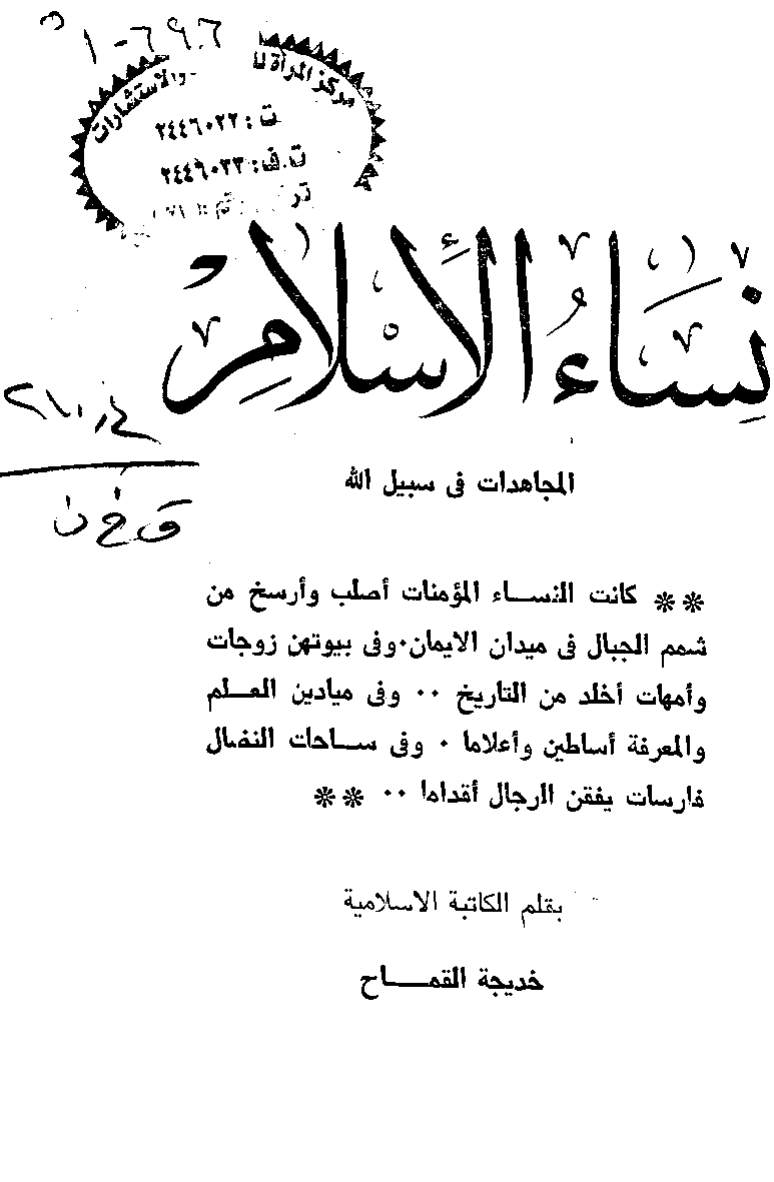 ١-٦٩٦
مركز المرأة
والاستشارات
ت : ٢٤٤٦٠٢٢
ت.ف: ٢٤٤٦٠٣٣
نِسَاءُ الْأِسْلَامِ
المجاهدات فى سبيل الله
** كانت النســاء المؤمنات أصلب وأرسخ من
شمم الجبال فى ميدان الايمان٠وفى بيوتهن زوجات
وأمهات أخلد من التاريخ ٠٠ وفى ميادين العــلم
والمعرفة أساطين وأعلاما ٠ وفى ســاحات النضال
فارسات يفقن الرجال أقداما ٠٠ **
بقلم الكاتبة الاسلامية
خديجة القمــاح